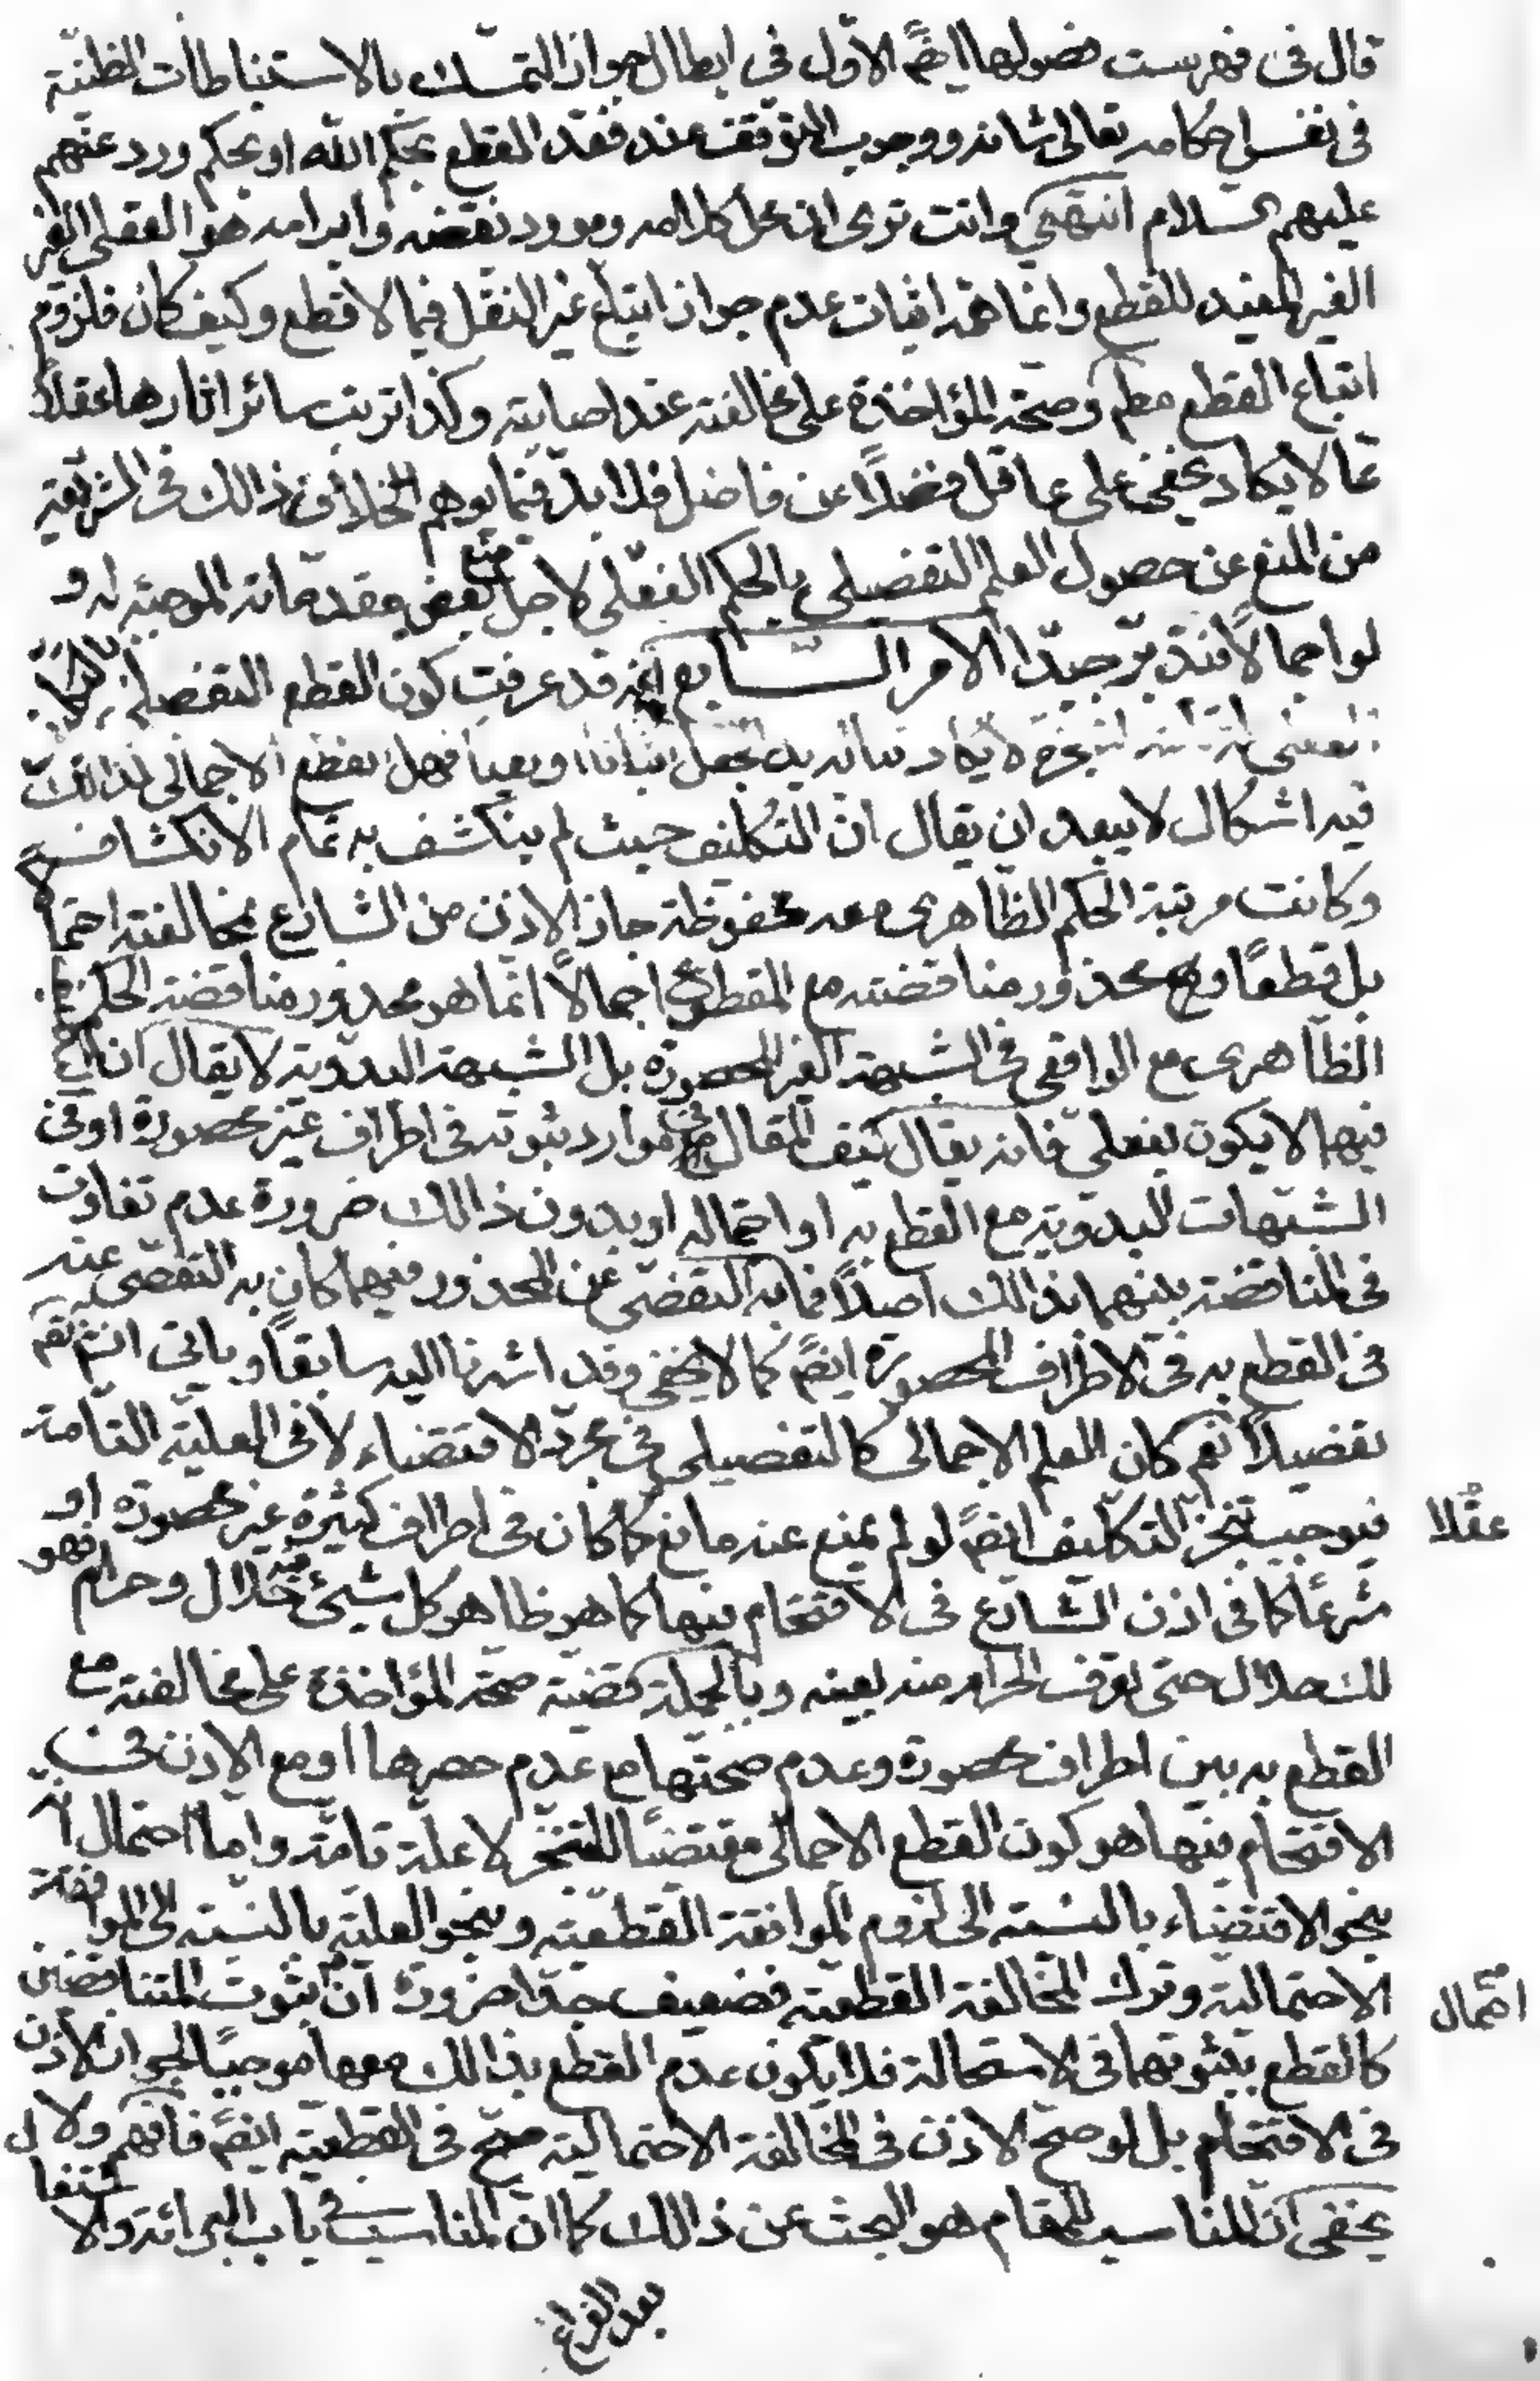 قال فى فهرست فصولها ايضً الاوّل فى ابطال جواز التمسّك بالاستنباطات الظنيّة
فى نفس احكامه تعالى شانه ووجوب التوقف عند فقد القطع بحكم اللّه او بحكم ورد عنهم
عليهم السّلام انتهى وانت ترى ان محل كلامه ومورد نقضه وابرامه هو العقلى الغير
الغير المفيد للقطع وانما همّه اثبات عدم جواز اتباع غير النقل فيما لا قطع وكيف كان فلزوم
اتباع القطع مطم وصحّة المؤاخذة على مخالفته عند اصابته وكذا ترتب سائر اثارها عقلاً
ممّا لا يكاد يخفى على عاقل فضلاً عن فاضل فلا بدّ فيما يوهم الخلاف ذالك فى الشريعة
من المنع عن حصول العلم التفصيلى بالحكم الفعلى لاجل منع بعض مقدماته الموجبة له و
لو اجمالاً فتدبّر جيّدا الامر السّابع انّه قد عرفت كون القطع التفصيلى بالتكليف
لا يكاد تناله يد الجعل اثباتا او نفيا فهل القطع الاجمالى كذالك
فيه اشكال لا يبعد ان يقال انّ التكليف حيث لم ينكشف به تمام الانكشاف
وكانت مرتبة الحكم الظّاهرى معه محفوظة جاز الاذن من الشارع بمخالفته احتمالا
بل قطعًا ومح محذور مناقضته مع المقطوع اجمالاً انّما هو محذور مناقضة الحكم
الظّاهرى مع الواقعى فى الشبهة الغير المحصورة بل الشبهة البدويّة لا يقال انّ
فيهما لا يكون بفعلى فانه يقال كيف المقال فى موارد ثبوته فى اطراف غير محصورة او فى
الشبهات البدويّة مع القطع به او احتماله او بدون ذالك ضرورة عدم تفاوت
فى المناقضة بينهما بذالك اصلاً فما به التفصّى عن المحذور فيهما كان به التفصّى عنه
فى القطع به فى الاطراف المحصورة ايضً كما لا يخفى وقد اشرنا اليه سابقاً وياتى انش تعم
تفصيلاً نعم كان العلم الاجمالى كالتفصيلى فى مجرّد الاقتضاء لا فى العليّة التّامة
فيوجب تنجّز التكليف ايضً لو لم يمنع عنه مانع كما كان فى اطراف كثيرة غير محصورة او
عقلا
شرعًا كما فى اذن الشارع فى الاقتحام فيها كما هو ظاهر كل شيئ فيه حلال وحرام فهو
لك حلال حتى تعرف الحرام منه بعينه وبالجملة قضيّة صحّة المؤاخذة على مخالفته مع
القطع به بين اطراف محصورة وعدم صحتها مع عدم حصرها او مع الاذن فى
الاقتحام فيها هو كون القطع الاجمالى مقتضيًا للتنجّز لا علّة تامّة واما احتمال انّه
بنحو الاقتضاء بالنسبة الى لزوم الموافقة القطعيّة وبنحو العليّة بالنسبة الى الموافقة
الاحتماليّة وترك المخالفة القطعيّة فضعيف جدّا ضرورة انّ ثبوت المتناقضين
احتمال
كالقطع بثبوتهما فى الاستحالة فلا يكون عدم القطع بذالك معها موجبًا لجواز الاذن
فى الاقتحام بل لو صحّ الاذن فى المخالفة الاحتماليّة صحّ فى القطعيّة ايضً فافهم ولا
يخفى انّ المناسب للمقام هو البحث عن ذالك كما انّ المناسب فى باب البرائة والاشتغال
بعد الفراغ